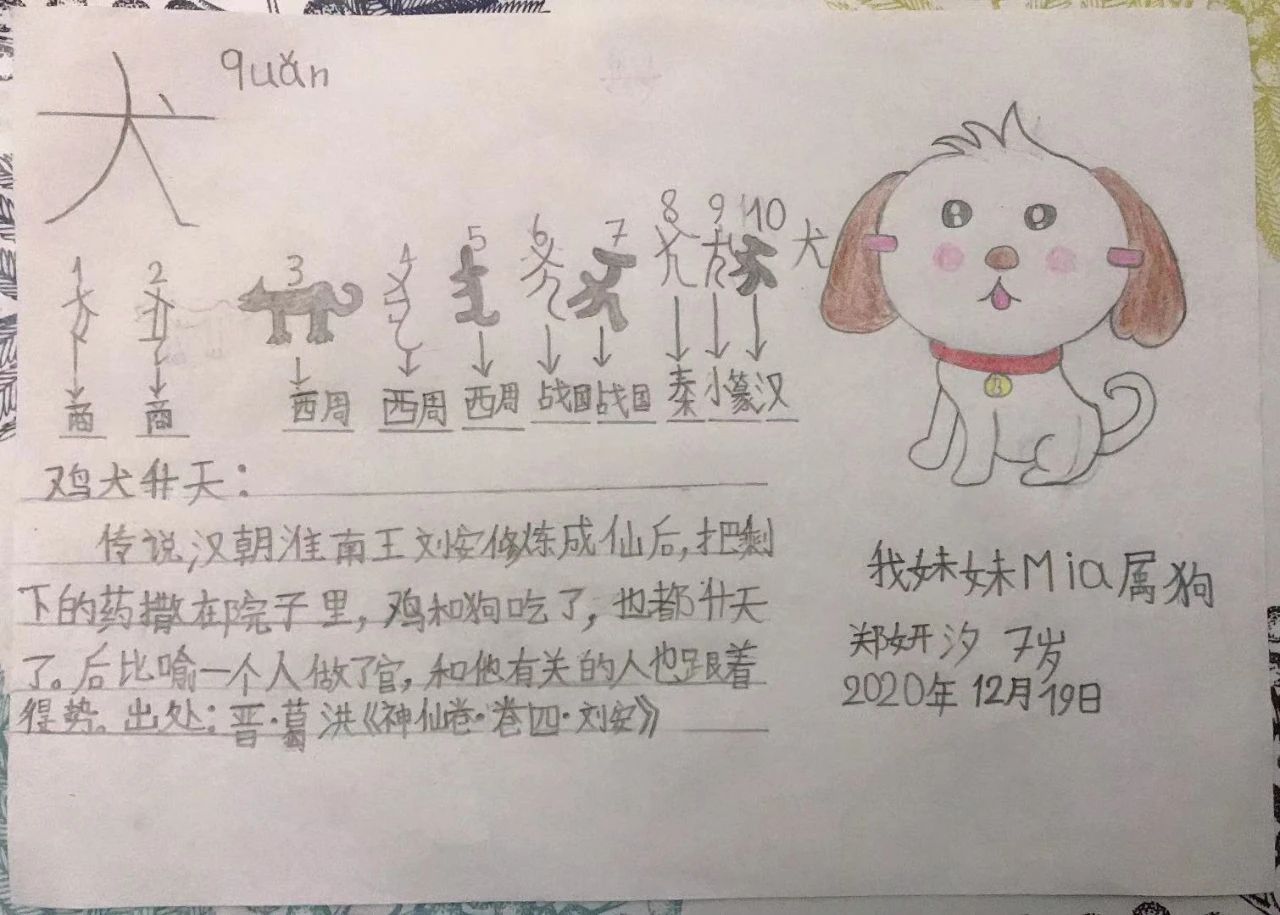 犬 quǎn
1 2 3 4 5 6 7 8 9 10 犬
商 商 西周 西周 西周 战国 战国 秦 小篆 汉
鸡犬升天：
传说，汉朝淮南王刘安修炼成仙后，把剩
下的药撒在院子里，鸡和狗吃了，也都升天
了。后比喻一个人做了官，和他有关的人也跟着
得势。出处：晋·葛洪《神仙卷·卷四·刘安》
我妹妹Mia属狗
郑妍汐 7岁
2020年12月19日